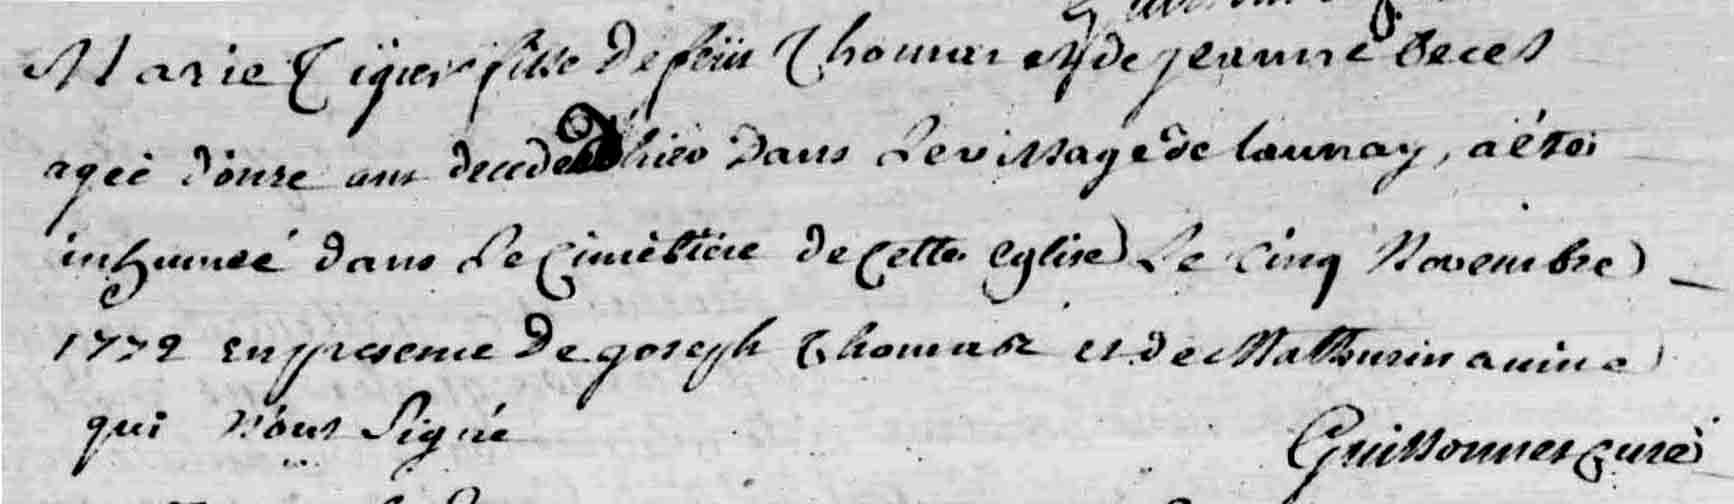 Marie Tiger fille de feu Thomas et de jeanne becel
agée d'onze ans decedée d'hier dans Le village de launay, a été
inhumée dans Le Cimetiere de Cette eglise Le cinq Novembre
1772 en presence De joseph Thomas et de Mathurin
qui n'ont Signé
Guillonnet curé